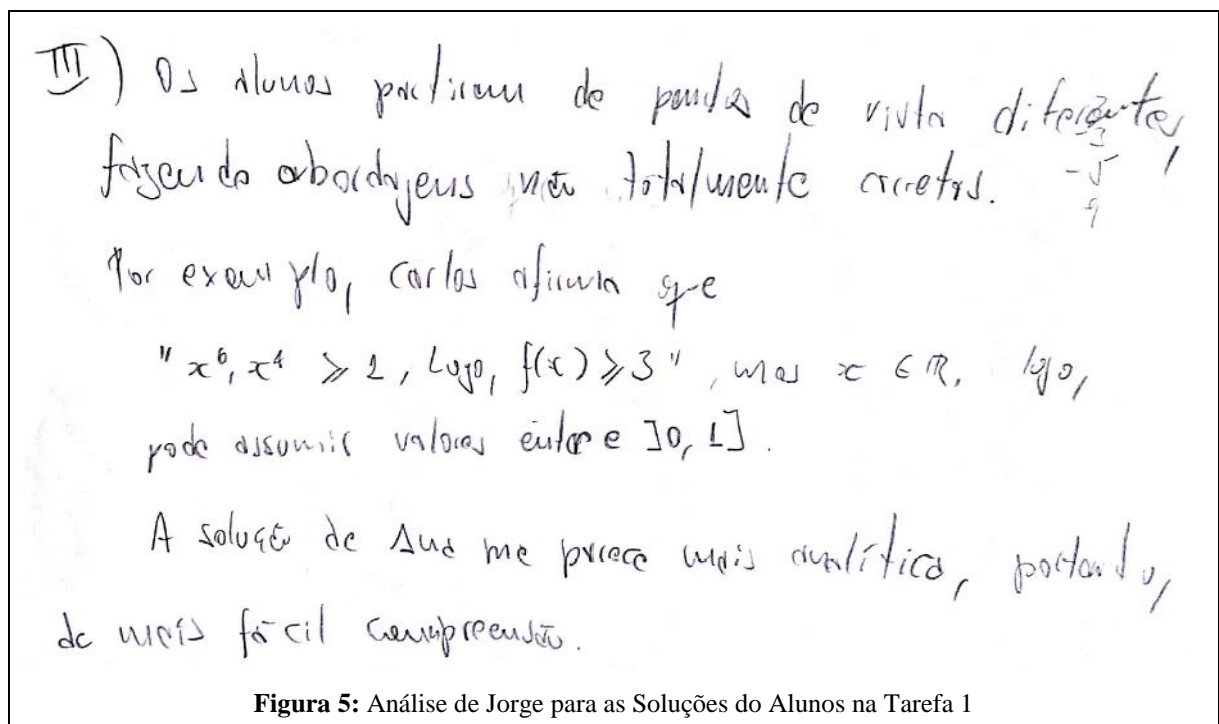 III) Os alunos partiram de pontos de vista diferentes,
fazendo abordagens não totalmente corretas.
-5
9
Por exemplo, Carlos afirma que
"x⁶, x⁴ ⩾ 1, Logo, f(x) ⩾ 3", mas x ∈ ℝ, logo,
pode assumir valores entre ]0, 1].
A solução de Ana me parece mais analítica, portanto,
de mais fácil compreensão.
Figura 5: Análise de Jorge para as Soluções do Alunos na Tarefa 1